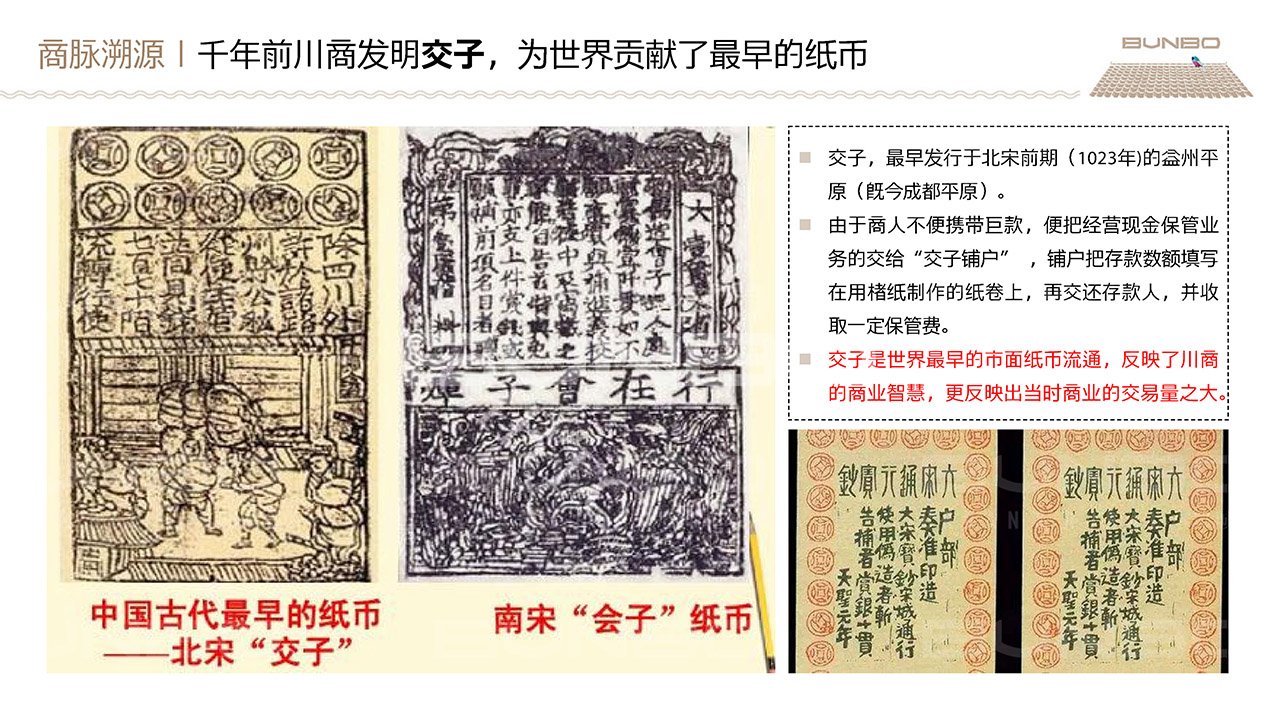 商脉溯源丨千年前川商发明交子，为世界贡献了最早的纸币
BUNBO
除四川外
許於諸路
州縣公私
從便主管
並同見錢
七百七十陌
流轉行使
大壹貫文省
第壹百拾料
行在會子庫
中国古代最早的纸币
——北宋“交子”
南宋“会子”纸币
交子，最早发行于北宋前期（1023年)的益州平
原（既今成都平原）。
由于商人不便携带巨款，便把经营现金保管业
务的交给“交子铺户” ，铺户把存款数额填写
在用楮纸制作的纸卷上，再交还存款人，并收
取一定保管费。
交子是世界最早的市面纸币流通，反映了川商
的商业智慧，更反映出当时商业的交易量之大。
大宋通行寶鈔
户部
奏准印造
大宋寶鈔宋城通行
使用偽造者斬
告捕者賞銀十貫
天聖元年
大宋通行寶鈔
户部
奏准印造
大宋寶鈔宋城通行
使用偽造者斬
告捕者賞銀十貫
天聖元年